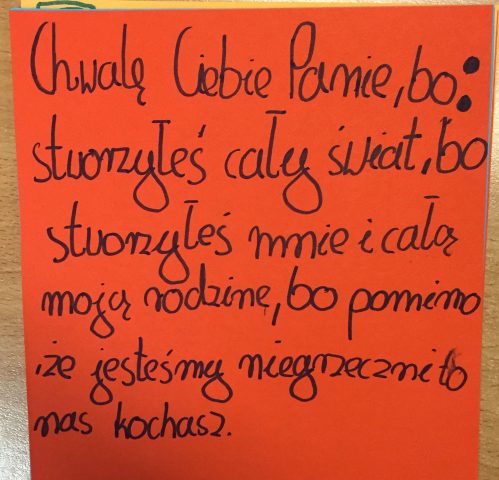 Chwalę Ciebie Panie, bo:
stworzyłeś cały świat, bo
stworzyłeś mnie i całą
moją rodzinę, bo pomimo
że jesteśmy niegrzeczni to
nas kochasz.